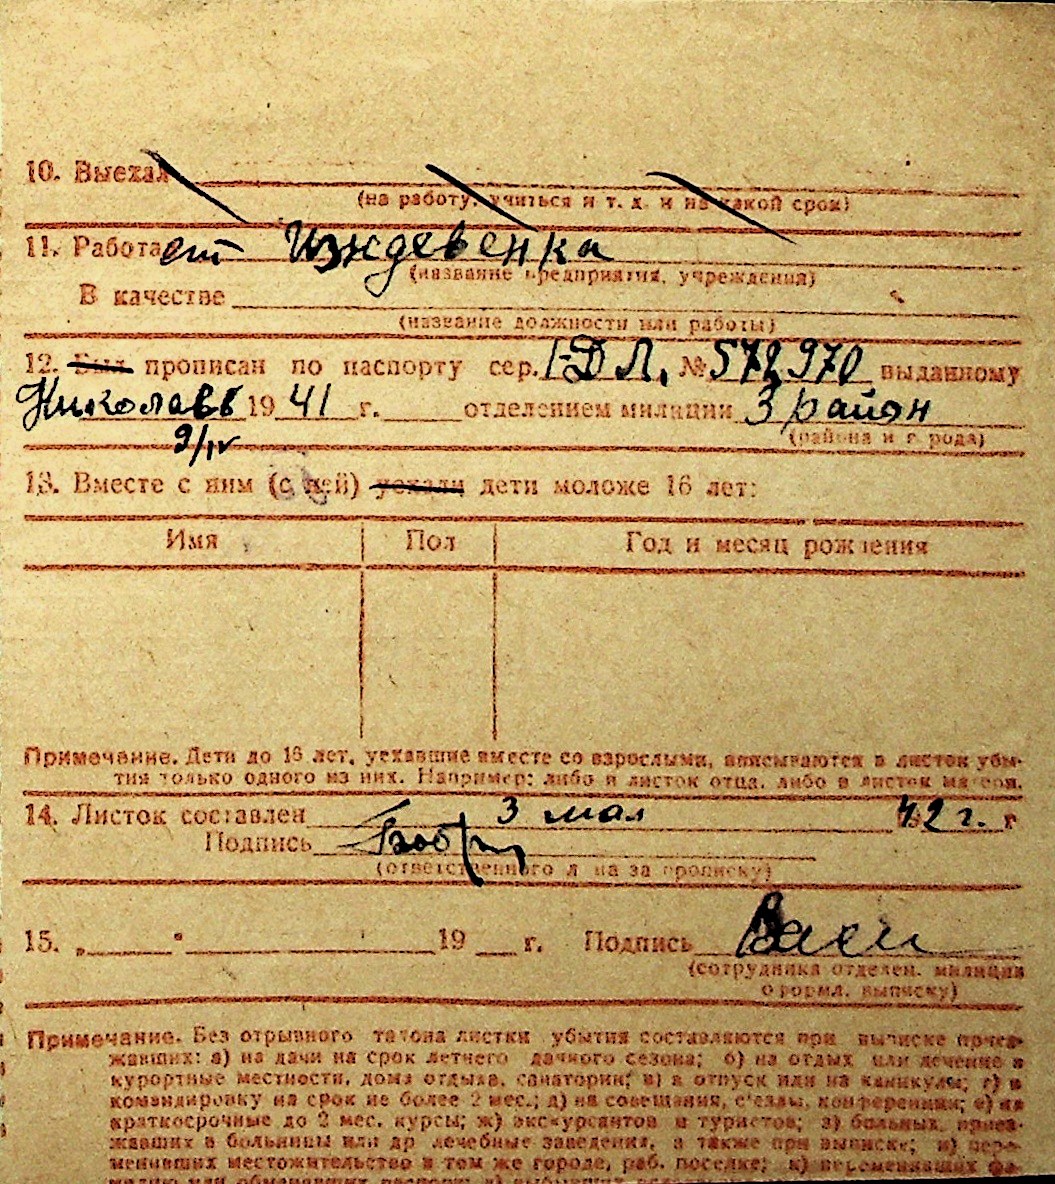 10. Выехал
(на работу, учиться и т. д. и на какой срок)
11. Работает Изждевенка
(название предприятия, учреждения)
В качестве
(название должности или работы)
12. Был прописан по паспорту сер. I-ДЛ, № 572970 выданному
Николаев 1941 г. отделением милиции 3 район
9/IV (района и города)
13. Вместе с ним (с ней) уехали дети моложе 16 лет:
Имя Пол Год и месяц рождения
Примечание. Дети до 16 лет, уехавшие вместе со взрослыми, вписываются в листок убы-
тия только одного из них. Например: либо в листок отца, либо в листок матери.
14. Листок составлен 3 мая 1942 г. г
Подпись
(ответственного л на за прописку)
15. „ " 19 г. Подпись
(сотрудника отделен. милиции
оформл. выписку)
Примечание. Без отрывного талона листки убытия составляются при выписке приез-
жавших: а) на дачи на срок летнего дачного сезона; б) на отдых или лечение в
курортные местности, дома отдыха, санатории; в) в отпуск или на каникулы; г) в
командировку на срок не более 2 мес.; д) на совещания, съезды, конференции; е) на
краткосрочные до 2 мес. курсы; ж) экскурсантов и туристов; з) больных, приез-
жавших в больницы или др лечебные заведения, а также при выписке; и) пере-
менивших местожительство в том же городе, раб. поселке; к) переменивших фа-
милию или обменявших паспорт;